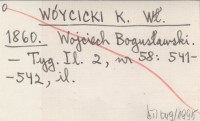 WÓYCICKI K. Wł.
1860. Wojciech Bogusławski.
— Tyg. Il. 2, nr 58: 541-
-542, il.